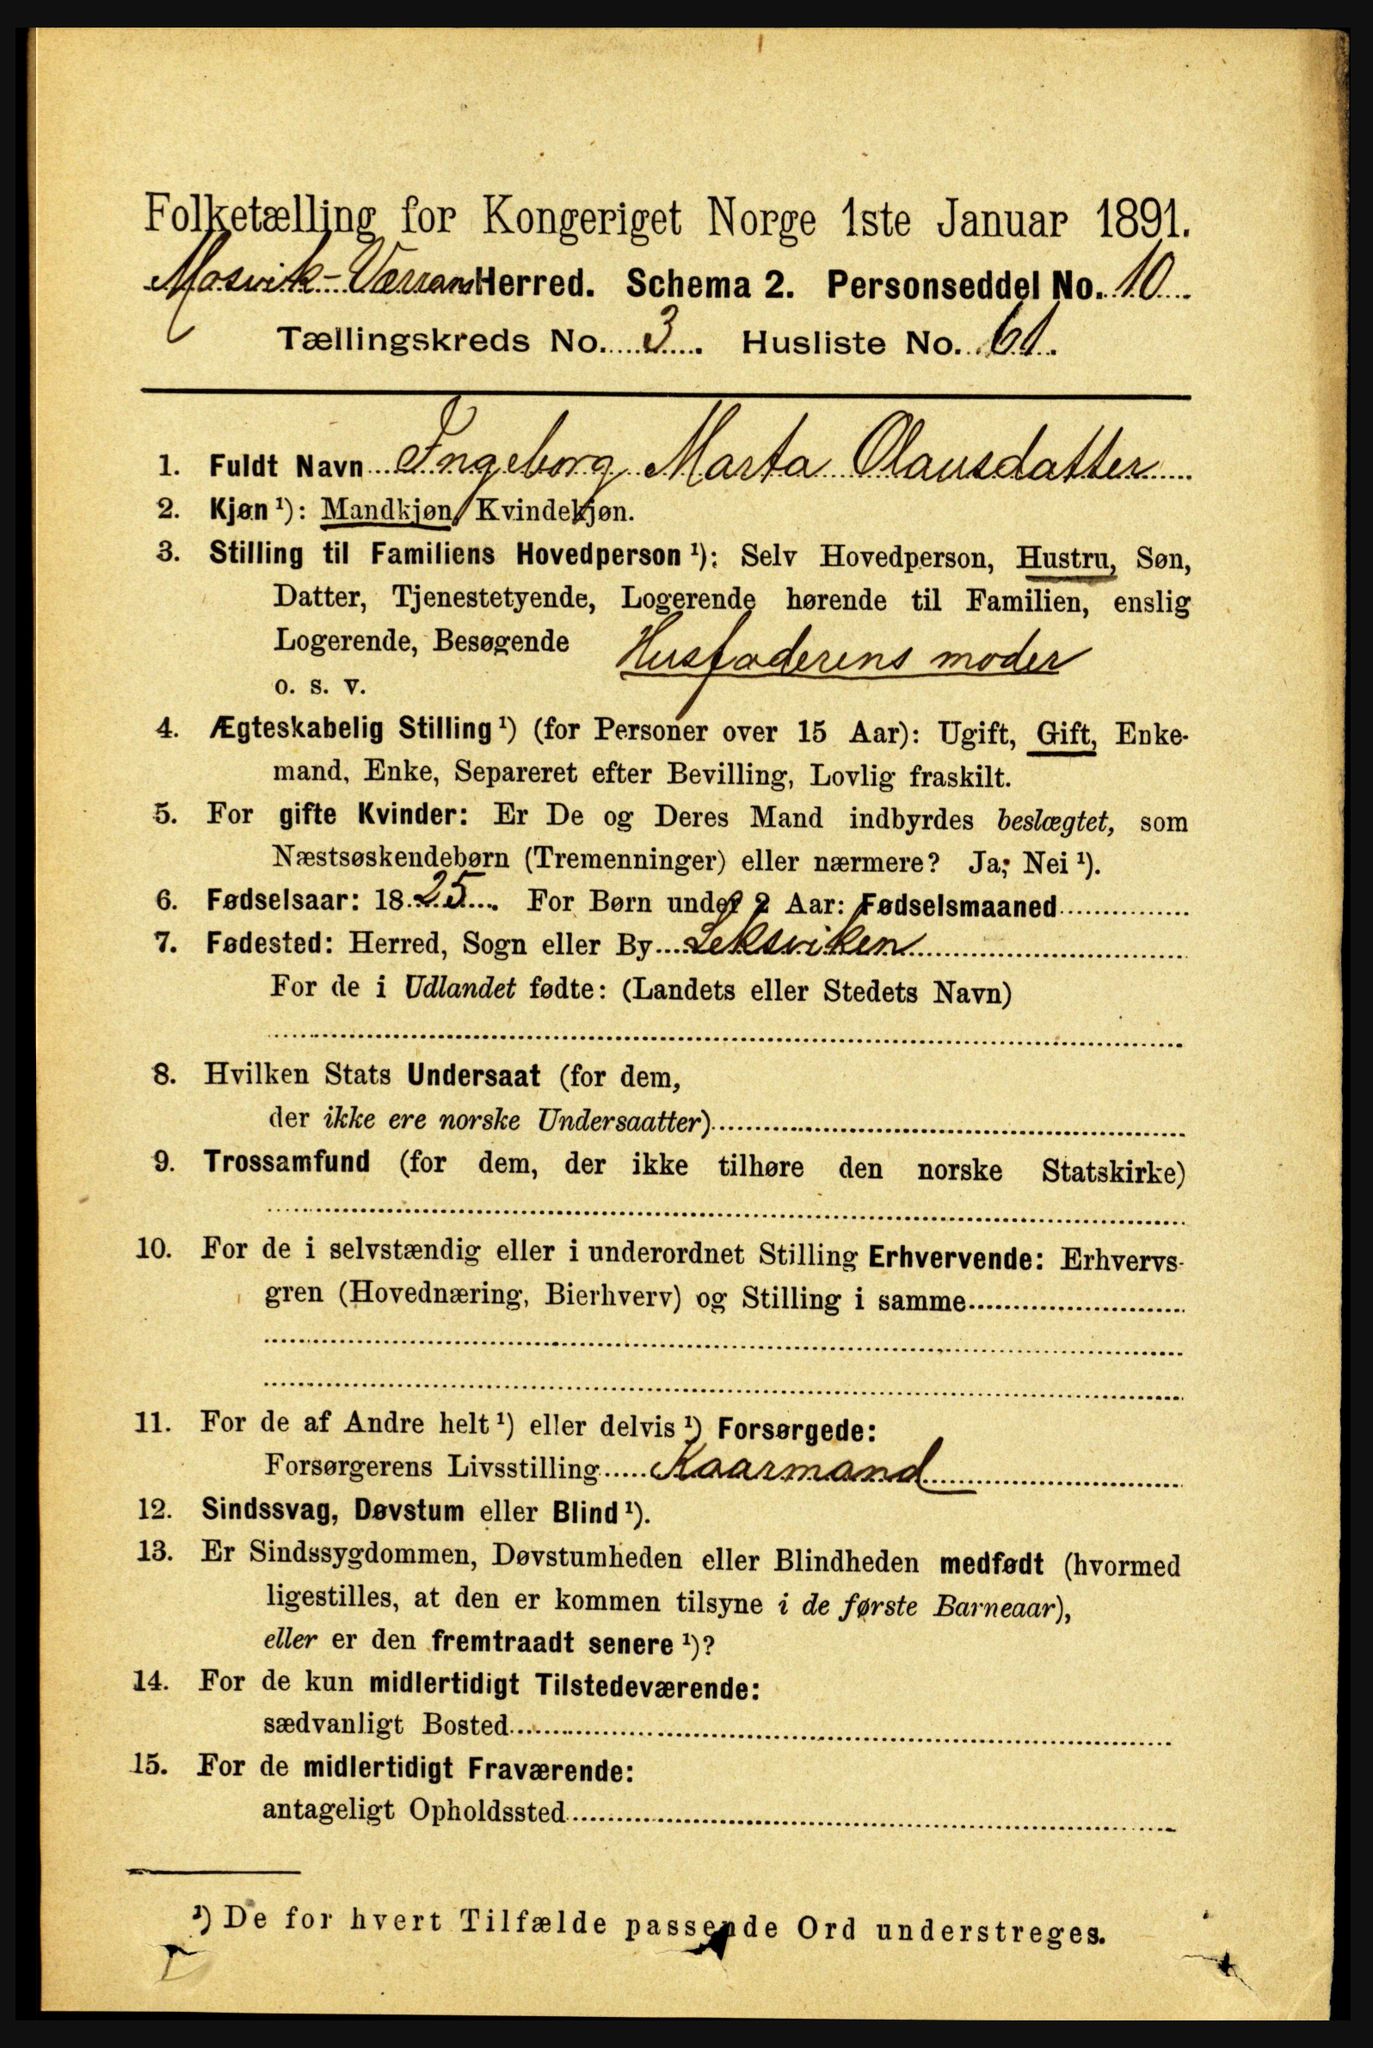 Folketælling for Kongeriget Norge 1ste Januar 1891.
Mosvik-Værran Herred. Schema 2. Personseddel No. 10
Tællingskreds No. 3. Husliste No. 61.
1. Fuldt Navn Ingeborg Marta Olausdatter
2. Kjøn ¹): Mandkjøn, Kvindekjøn.
3. Stilling til Familiens Hovedperson ¹): Selv Hovedperson, Hustru, Søn,
Datter, Tjenestetyende, Logerende hørende til Familien, enslig
Logerende, Besøgende Husfaderens moder
o. s. v.
4. Ægteskabelig Stilling ¹) (for Personer over 15 Aar): Ugift, Gift, Enke-
mand, Enke, Separeret efter Bevilling, Lovlig fraskilt.
5. For gifte Kvinder: Er De og Deres Mand indbyrdes beslægtet, som
Næstsøskendebørn (Tremenninger) eller nærmere? Ja; Nei ¹).
6. Fødselsaar: 1825. For Børn under 2 Aar: Fødselsmaaned
7. Fødested: Herred, Sogn eller By Leksviken
For de i Udlandet fødte: (Landets eller Stedets Navn)
8. Hvilken Stats Undersaat (for dem,
der ikke ere norske Undersaatter)
9. Trossamfund (for dem, der ikke tilhøre den norske Statskirke)
10. For de i selvstændig eller i underordnet Stilling Erhvervende: Erhvervs-
gren (Hovednæring, Bierhverv) og Stilling i samme
11. For de af Andre helt ¹) eller delvis ¹) Forsørgede:
Forsørgerens Livsstilling Kaarmand
12. Sindssvag, Døvstum eller Blind ¹).
13. Er Sindssygdommen, Døvstumheden eller Blindheden medfødt (hvormed
ligestilles, at den er kommen tilsyne i de første Barneaar),
eller er den fremtraadt senere ¹)?
14. For de kun midlertidigt Tilstedeværende:
sædvanligt Bosted
15. For de midlertidigt Fraværende:
antageligt Opholdssted
¹) De for hvert Tilfælde passende Ord understreges.